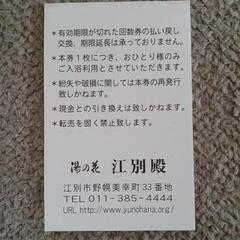 *有効期限が切れた回数券の払い戻し
交換、期限延長は承っておりません。
*本券1枚につき、おひとり様のみ
ご入浴利用とさせていただきます。
*紛失や破損に関しては本券の再発行
致しかねます。
*現金との引き換えは致しかねます。
*転売を固く禁止致します。
湯の花 江別殿
江別市野幌美幸町33番地
TEL 011-385-4444
URL http://www.yunohana.org/